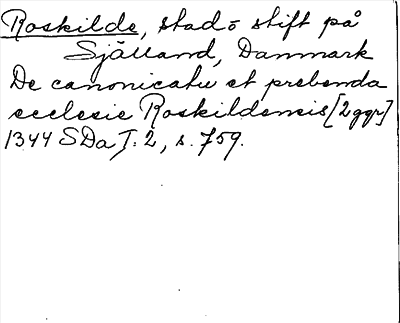 Roskilde, stad o stift på
Själland, Danmark
De canonicatu et prebenda
ecclesie Roskildensis [2 ggr]
1344 SDa J. 2, s. 759.